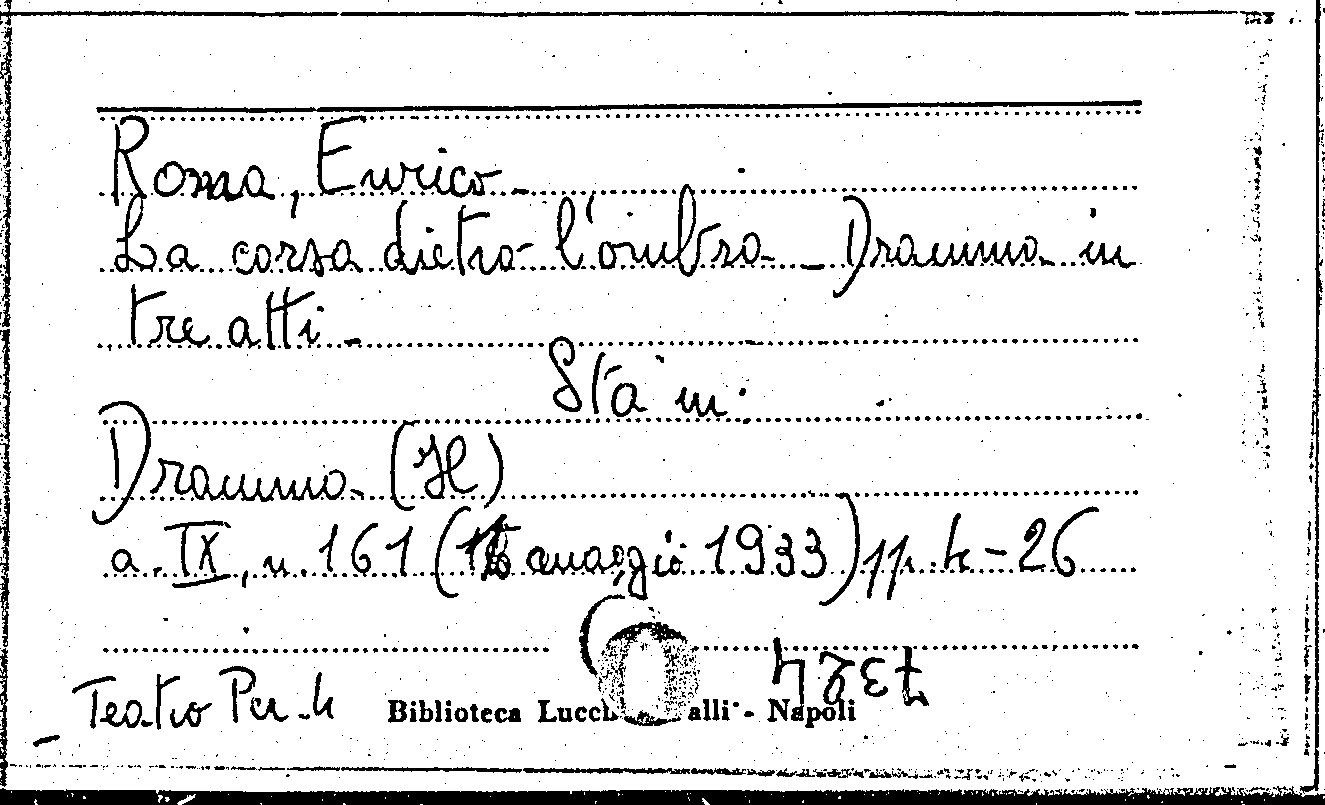 Roma, Enrico -
La corsa dietro l'ombra - Dramma in
tre atti -
Sta in:
Dramma (Il)
a. IX, n. 161 (1 maggio 1933) pp. 4-26
Teatro Per. 4 Biblioteca Lucch alli - Napoli